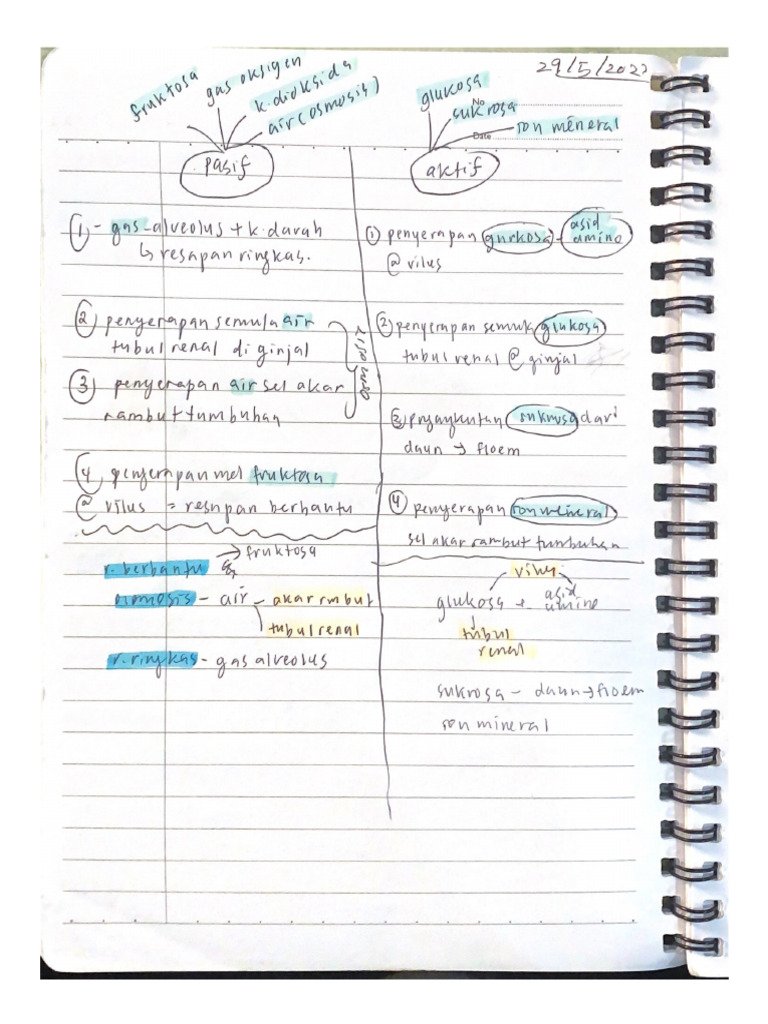 29/5/2022
fruktosa
gas oksigen
k.dioksida
air (osmosis)
pasif
glukosa
No
sukrosa
Date
ion mineral
aktif
① - gas - alveolus + k.darah
↳ resapan ringkas.
② penyerapan semula air
tubul renal di ginjal
③ penyerapan air sel akar
rambut tumbuhan
④ penyerapan mel fruktosa
@ vilus = resapan berbantu
r. berbantu → fruktosa
osmosis - air - akar rmbut
tubul renal
r. ringkas - gas alveolus
① penyerapan gulkosa + asid amino
@ vilus
② penyerapan semula glukosa
tubul renal @ ginjal
③ pngangkutan sukrosa dari
daun → floem
④ penyerapan ion mineral
sel akar rambut tumbuhan
vilus
glukosa + asid amino
tubul
renal
sukrosa - daun → floem
ion mineral